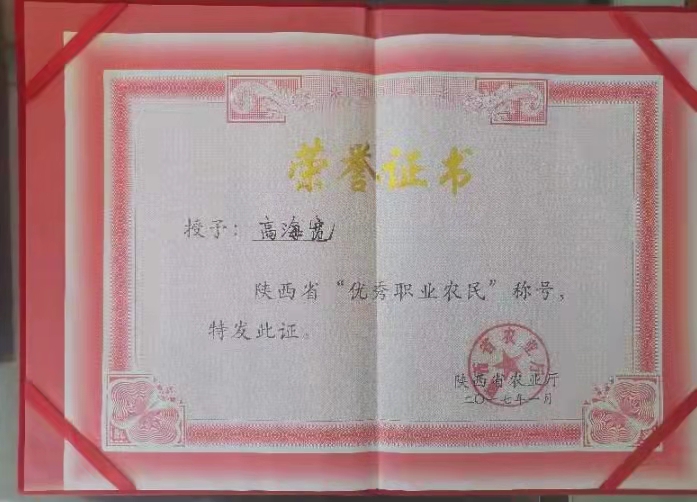 荣誉证书
授予：高海宽
陕西省“优秀职业农民”称号，
特发此证。
陕西省农业厅
二〇一七年一月